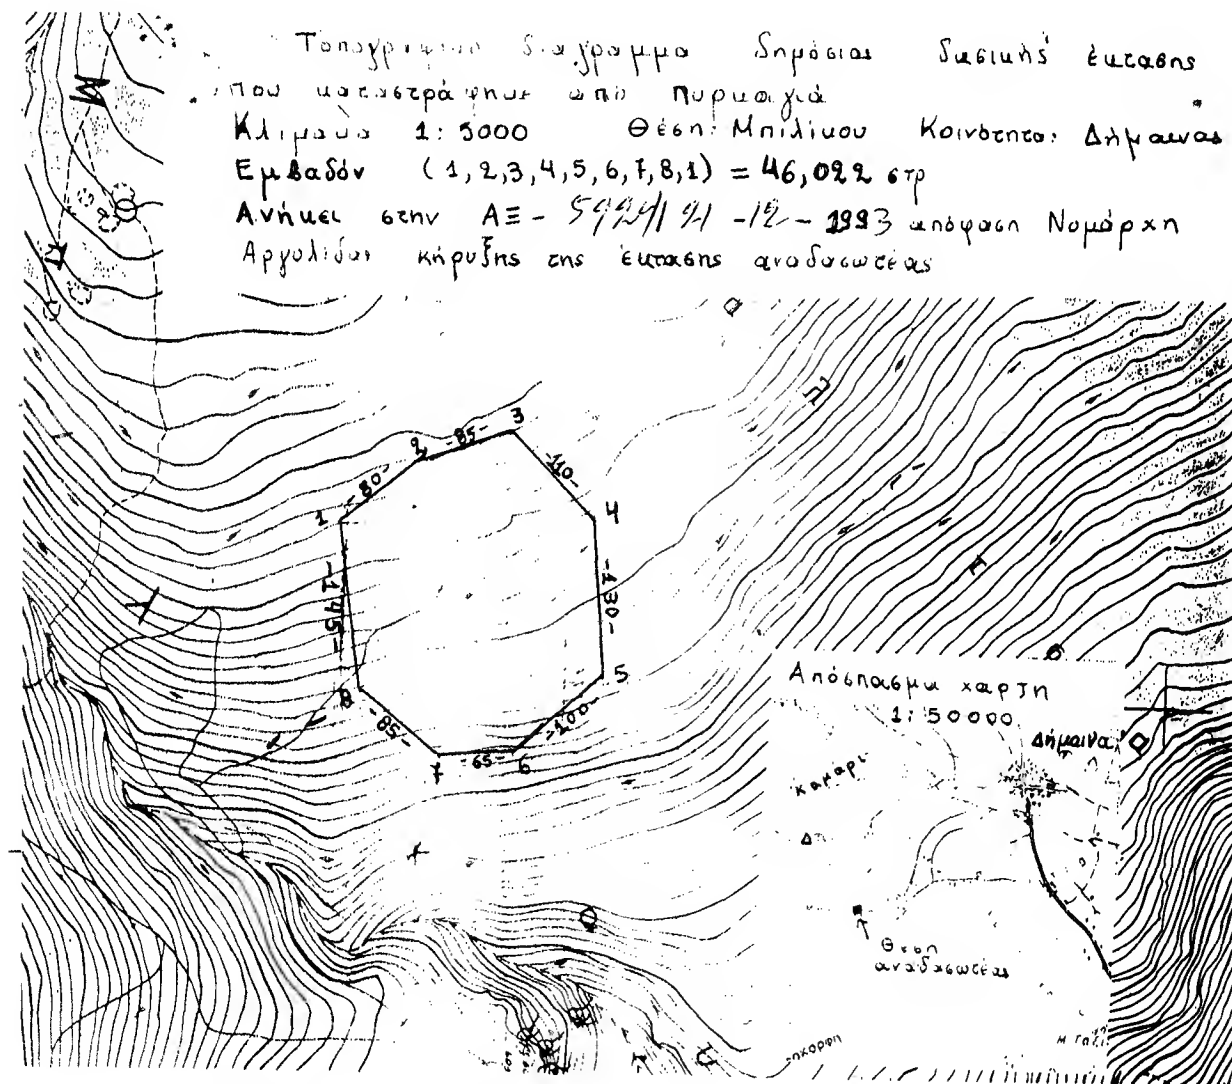 Τοπογραφικό διάγραμμα δημόσιας δασικής έκτασης
που καταστράφηκε από πυρκαγιά
Κλίμακα 1:5000 Θέση: Μπιλίκου Κοινότητα: Δήμαινας
Εμβαδόν (1,2,3,4,5,6,7,8,1) = 46,022 στρ
Ανήκει στην ΑΞ- -12-1993 απόφαση Νομάρχη
Αργολίδας κήρυξης της έκτασης αναδασωτέας
3
2 -85-
-110-
-80-
1
4
-145-
-130-
5
8
-85-
-100-
7 -65- 6
Απόσπασμα χαρτη
1:50000
Δήμαινα
Καμαρι
Θεση
αναδασωτέας